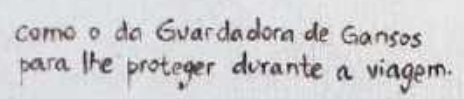 como o da Guardadora de Gansos
para lhe proteger durante a viagem.